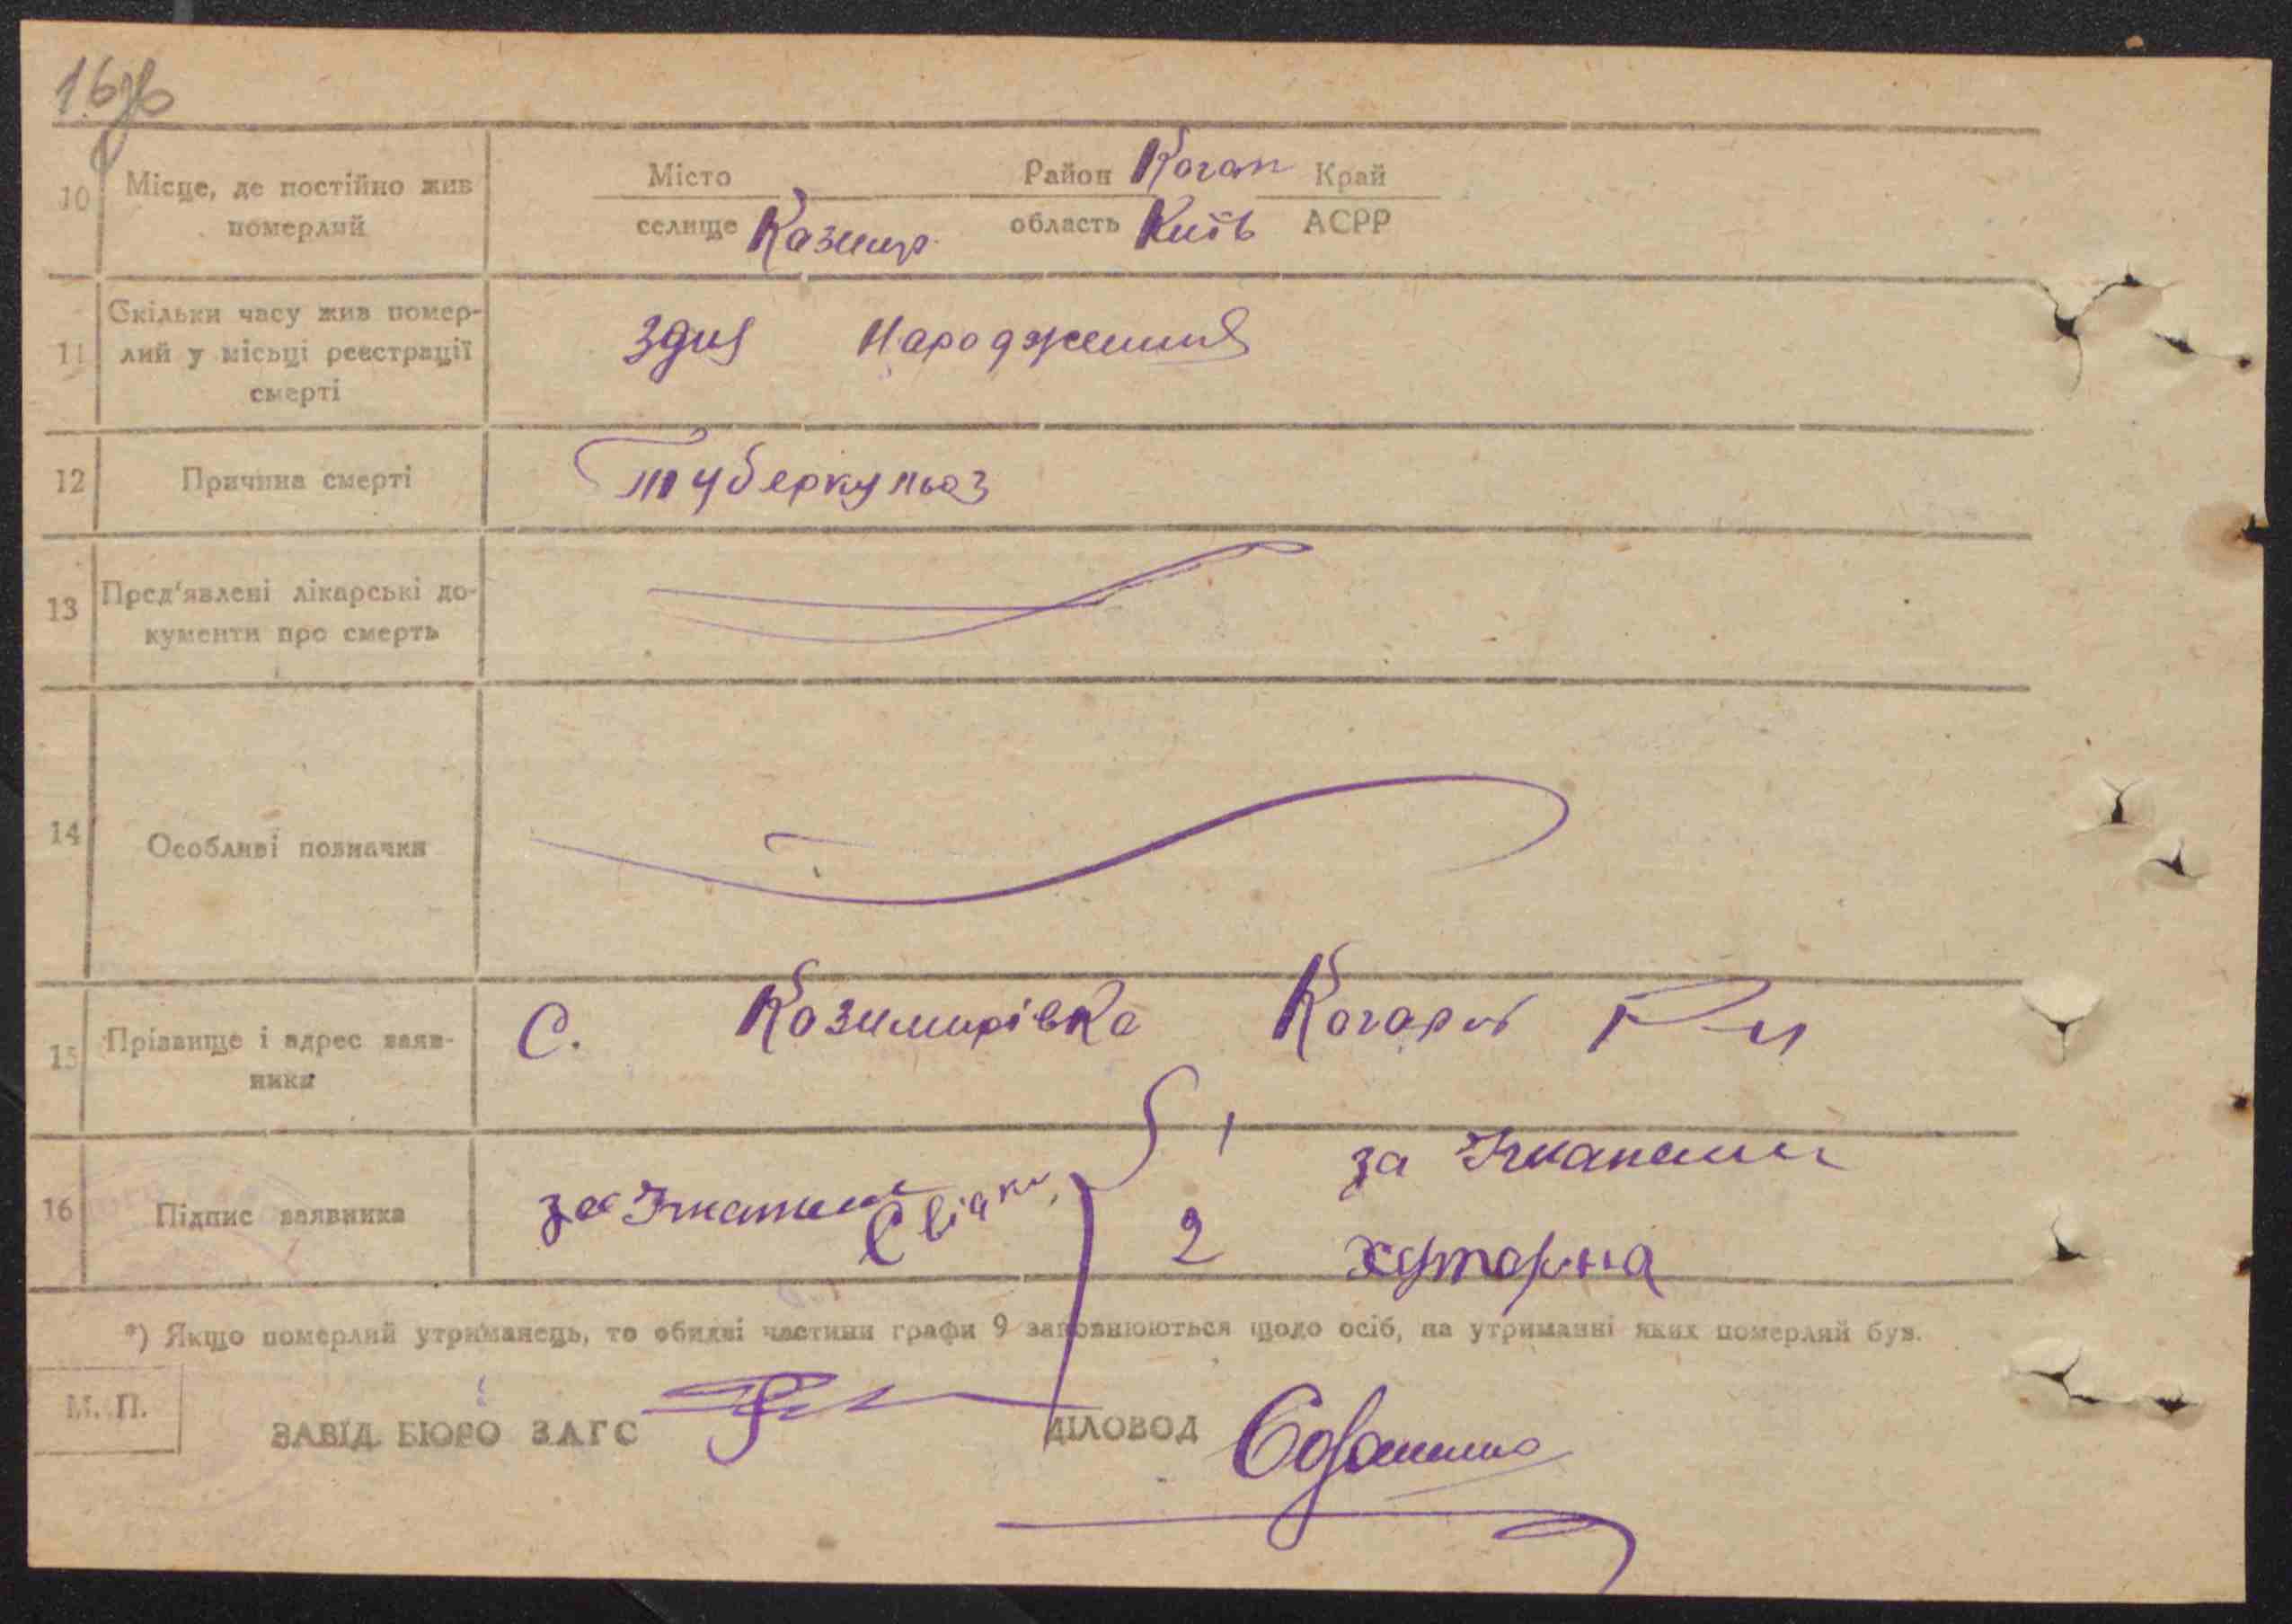 16зв
10 Місце, де постійно жив померлий
Місто Район Коган Край
селище Казимир. область Київ АСРР
11 Скільки часу жив помер-
лий у місьці реєстрації
смерті
З дня Народження
12 Причина смерті Туберкульоз
13 Пред'явлені лікарські до-
кументи про смерть
14 Особливі позначки
15 Прізвище і адрес заяв-
ника
С. Козимирівка Когарл Р-н
16 Підпис заявника
Свідки, 1 за
2 хуторна
*) Якщо померлий утриманець, то обидві частини графи 9 заповнюються щодо осіб, на утриманні яких померлий був.
М. П.
ЗАВІД. БЮРО ЗАГС ДІЛОВОД